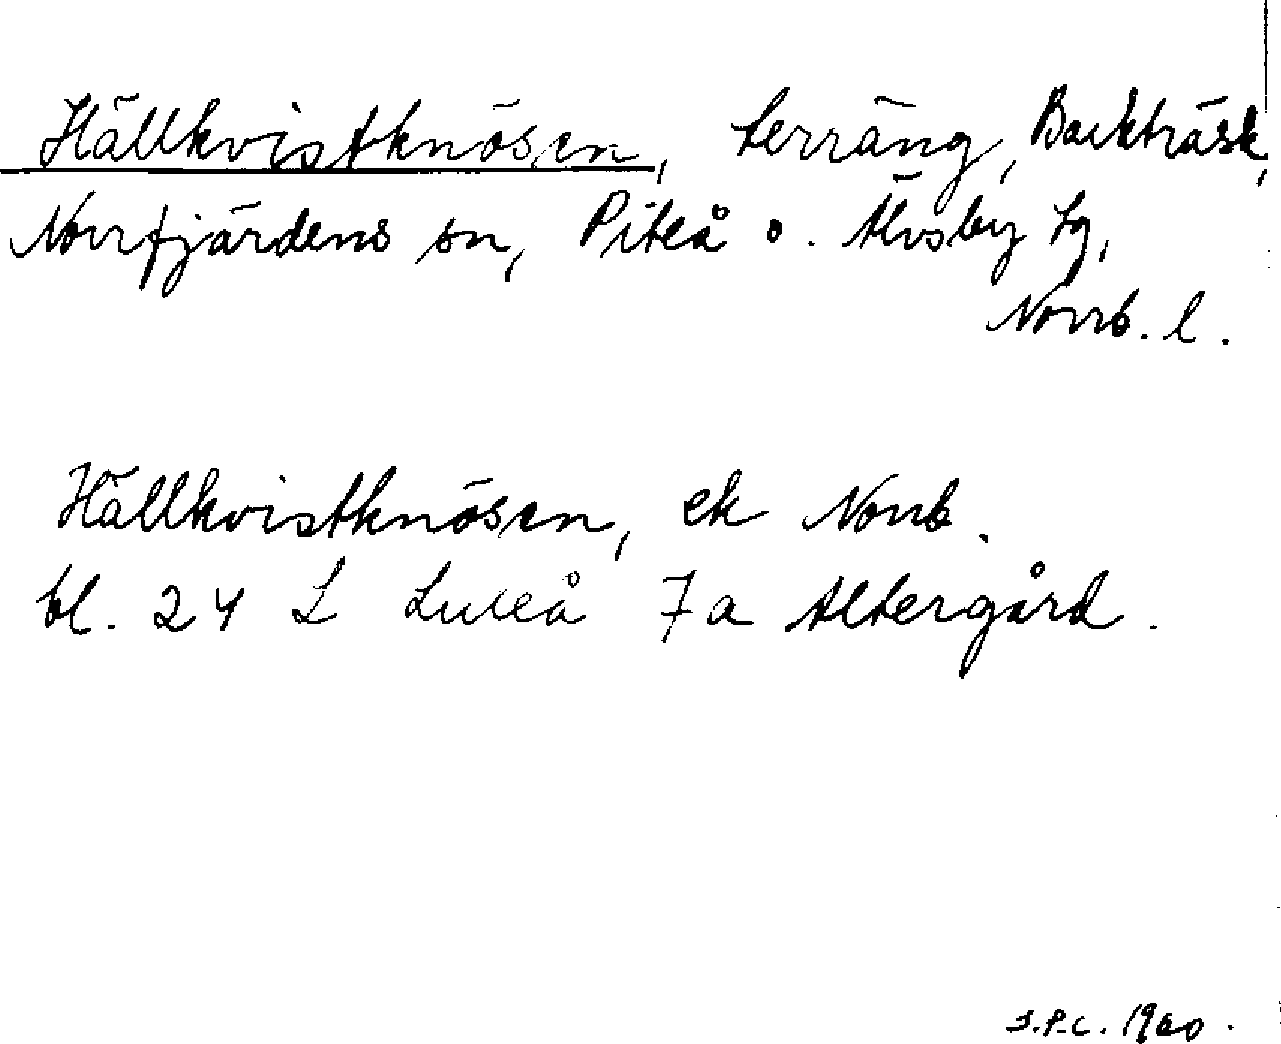 Hällkvistknösen, terräng, Backträsk,
Norrfjärdens sn, Piteå o. Älvsby tg,
Norrb. l.
Hällkvistknösen, ek Norrb.
bl. 24 L Luleå 7a Altergård.
S.P.C. 1960.